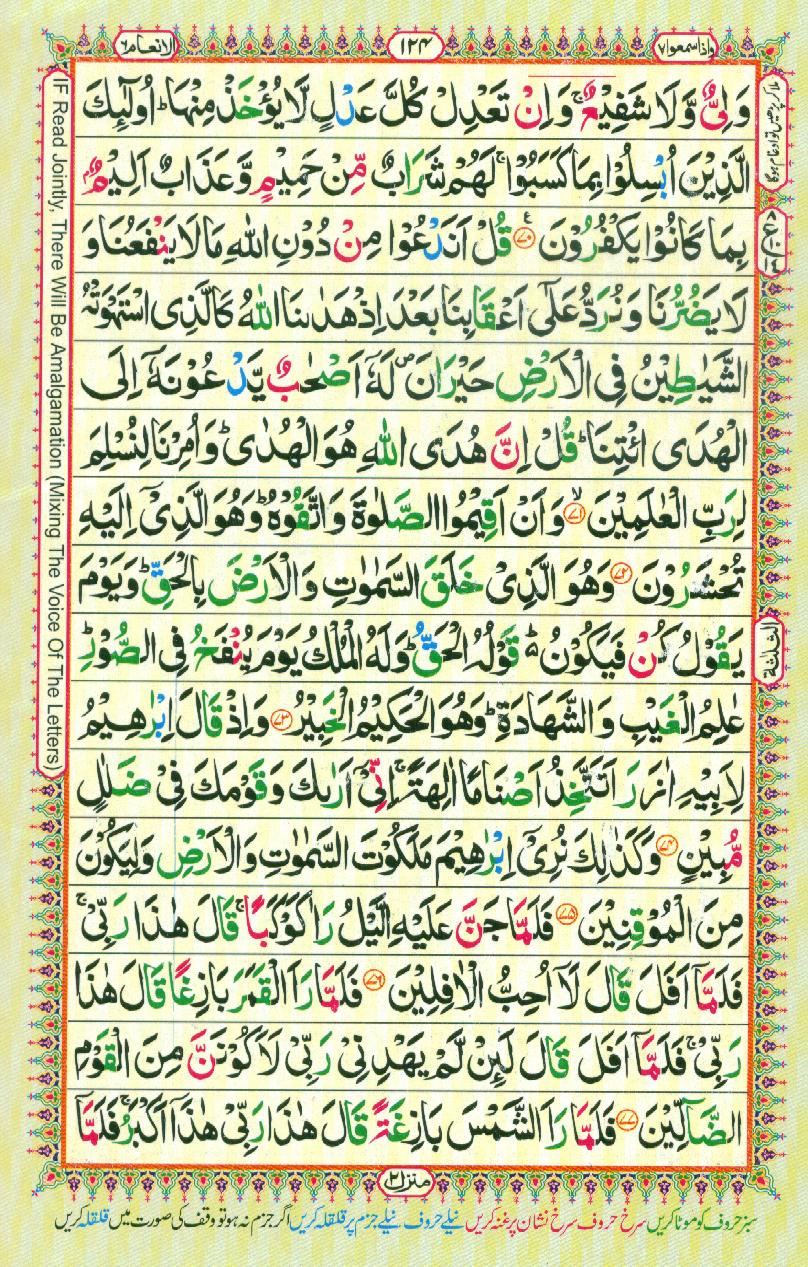 واذاسمعوا٧
١٢٤
الانعام٦
وَلِیٌّ وَّلَا شَفِیْعٌ ۚ وَاِنْ تَعْدِلْ كُلَّ عَدْلٍ لَّا یُؤْخَذْ مِنْهَا ؕ اُولٰٓئِكَ
الَّذِیْنَ اُبْسِلُوْا بِمَا كَسَبُوْا ۚ لَهُمْ شَرَابٌ مِّنْ حَمِیْمٍ وَّعَذَابٌ اَلِیْمٌۢ
بِمَا كَانُوْا یَكْفُرُوْنَ ﴿۷۰﴾ قُلْ اَنَدْعُوْا مِنْ دُوْنِ اللّٰهِ مَا لَا یَنْفَعُنَا وَ
لَا یَضُرُّنَا وَنُرَدُّ عَلٰۤی اَعْقَابِنَا بَعْدَ اِذْ هَدٰىنَا اللّٰهُ كَالَّذِی اسْتَهْوَتْهُ
الشَّیٰطِیْنُ فِی الْاَرْضِ حَیْرَانَ ۪ لَهٗۤ اَصْحٰبٌ یَّدْعُوْنَهٗۤ اِلَی
الْهُدَی ائْتِنَا ؕ قُلْ اِنَّ هُدَی اللّٰهِ هُوَ الْهُدٰی ؕ وَاُمِرْنَا لِنُسْلِمَ
لِرَبِّ الْعٰلَمِیْنَ ﴿۷۱﴾ وَاَنْ اَقِیْمُوا الصَّلٰوةَ وَاتَّقُوْهُ ؕ وَهُوَ الَّذِیْۤ اِلَیْهِ
تُحْشَرُوْنَ ﴿۷۲﴾ وَهُوَ الَّذِیْ خَلَقَ السَّمٰوٰتِ وَالْاَرْضَ بِالْحَقِّ ؕ وَیَوْمَ
یَقُوْلُ كُنْ فَیَكُوْنُ ؕ قَوْلُهُ الْحَقُّ ؕ وَلَهُ الْمُلْكُ یَوْمَ یُنْفَخُ فِی الصُّوْرِ ؕ
عٰلِمُ الْغَیْبِ وَالشَّهَادَةِ ؕ وَهُوَ الْحَكِیْمُ الْخَبِیْرُ ﴿۷۳﴾ وَاِذْ قَالَ اِبْرٰهِیْمُ
لِاَبِیْهِ اٰزَرَ اَتَتَّخِذُ اَصْنَامًا اٰلِهَةً ۚ اِنِّیْۤ اَرٰىكَ وَقَوْمَكَ فِیْ ضَلٰلٍ
مُّبِیْنٍ ﴿۷۴﴾ وَكَذٰلِكَ نُرِیْۤ اِبْرٰهِیْمَ مَلَكُوْتَ السَّمٰوٰتِ وَالْاَرْضِ وَلِیَكُوْنَ
مِنَ الْمُوْقِنِیْنَ ﴿۷۵﴾ فَلَمَّا جَنَّ عَلَیْهِ الَّیْلُ رَاٰ كَوْكَبًا ۚ قَالَ هٰذَا رَبِّیْ ۚ
فَلَمَّاۤ اَفَلَ قَالَ لَاۤ اُحِبُّ الْاٰفِلِیْنَ ﴿۷۶﴾ فَلَمَّا رَاَ الْقَمَرَ بَازِغًا قَالَ هٰذَا
رَبِّیْ ۚ فَلَمَّاۤ اَفَلَ قَالَ لَىِٕنْ لَّمْ یَهْدِنِیْ رَبِّیْ لَاَكُوْنَنَّ مِنَ الْقَوْمِ
الضَّآلِّیْنَ ﴿۷۷﴾ فَلَمَّا رَاَ الشَّمْسَ بَازِغَةً قَالَ هٰذَا رَبِّیْ هٰذَاۤ اَكْبَرُ ۚ فَلَمَّاۤ
منزل٢
الثلثة
IF Read Jointly, There Will Be Amalgamation (Mixing The Voice Of The Letters)
سبز حروف کو موٹا کریں سرخ حروف سرخ نشان پر غنہ کریں نیلے حروف نیلے جزم پر قلقلہ کریں اگر جزم نہ ہو تو وقف کی صورت میں قلقلہ کریں